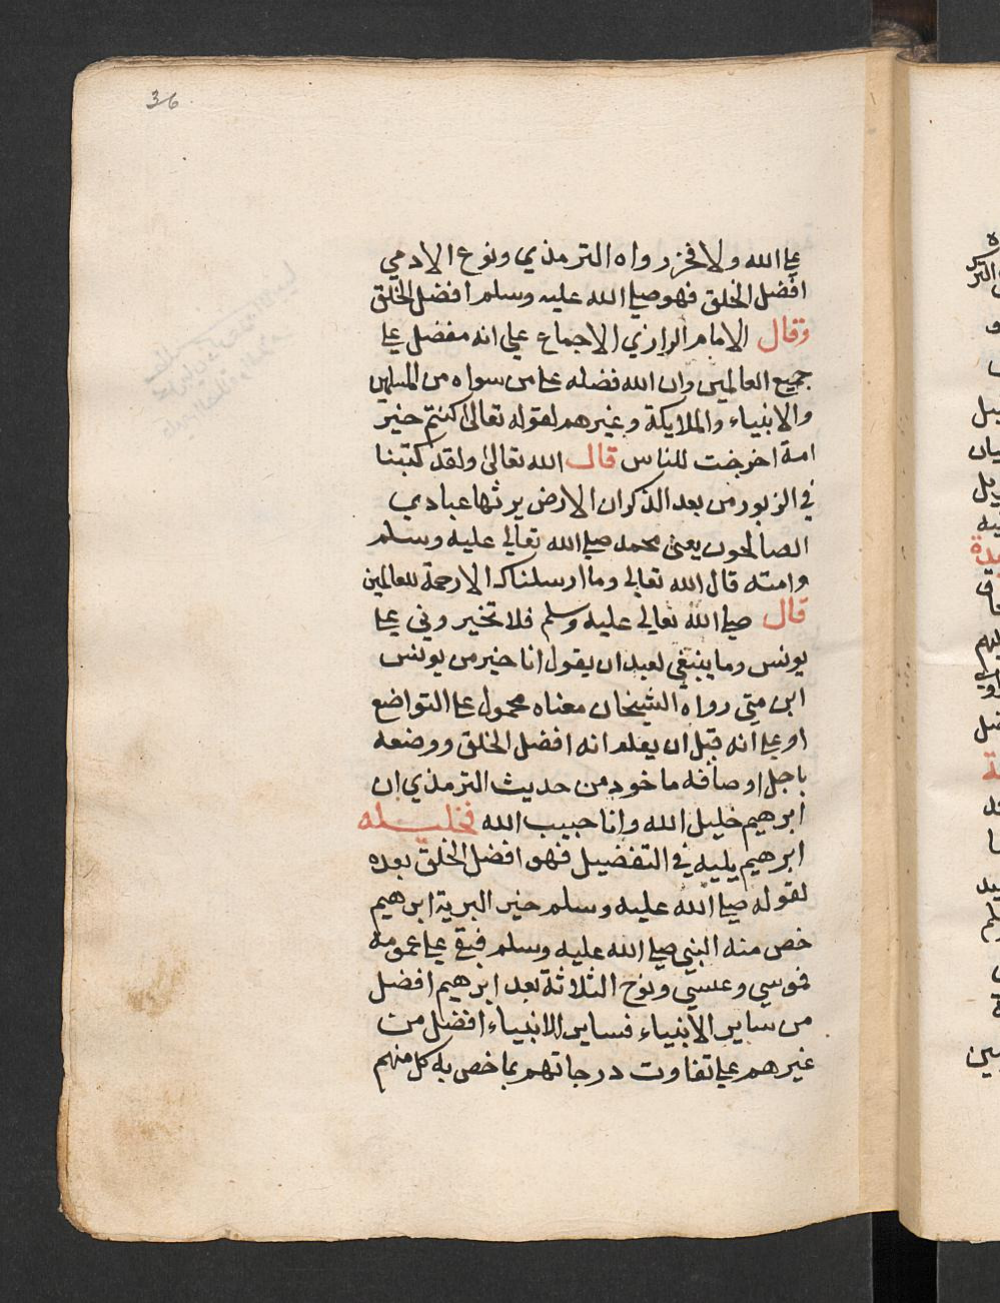 36
علي الله ولا فخر رواه الترمذي ونوع الادمي
افضل الخلق فهو صلي الله عليه وسلم افضل الخلق
وقال الامام الرازي الاجماع علي انه مفضل علي
جميع العالمين وان الله فضله علي من سواه من المسلمين
والانبياء والملايكة وغيرهم لقوله تعالى كنتم خير
امة اخرجت للناس قال الله تعالى ولقد كتبنا
في الزبور من بعد الذكر ان الارض يرثها عبادي
الصالحون يعني محمد صلي الله تعالي عليه وسلم
وامته قال الله تعالي وما ارسلناك الا رحمة للعالمين
قال صلي الله تعالي عليه وسلم فلا تخيروني علي
يونس وما ينبغي لعبد ان يقول انا خير من يونس
ابن متي رواه الشيخان معناه محمول علي التواضع
او علي انه قبل ان يعلم انه افضل الخلق ووضعه
باجل اوصافه ماخود من حديث الترمذي ان
ابرهيم خليل الله وانا حبيب الله فخليله
ابرهيم يليه في التفضيل فهو افضل الخلق بعده
لقوله صلي الله عليه وسلم خير البرية ابرهيم
خص منه النبي صلي الله عليه وسلم فبقي علي عمومه
فموسي وعسي ونوح الثلاثة بعد ابرهيم افضل
من ساير الانبياء فساير الانبياء افضل من
غيرهم علي تفاوت درجاتهم بما خص به كل منهم